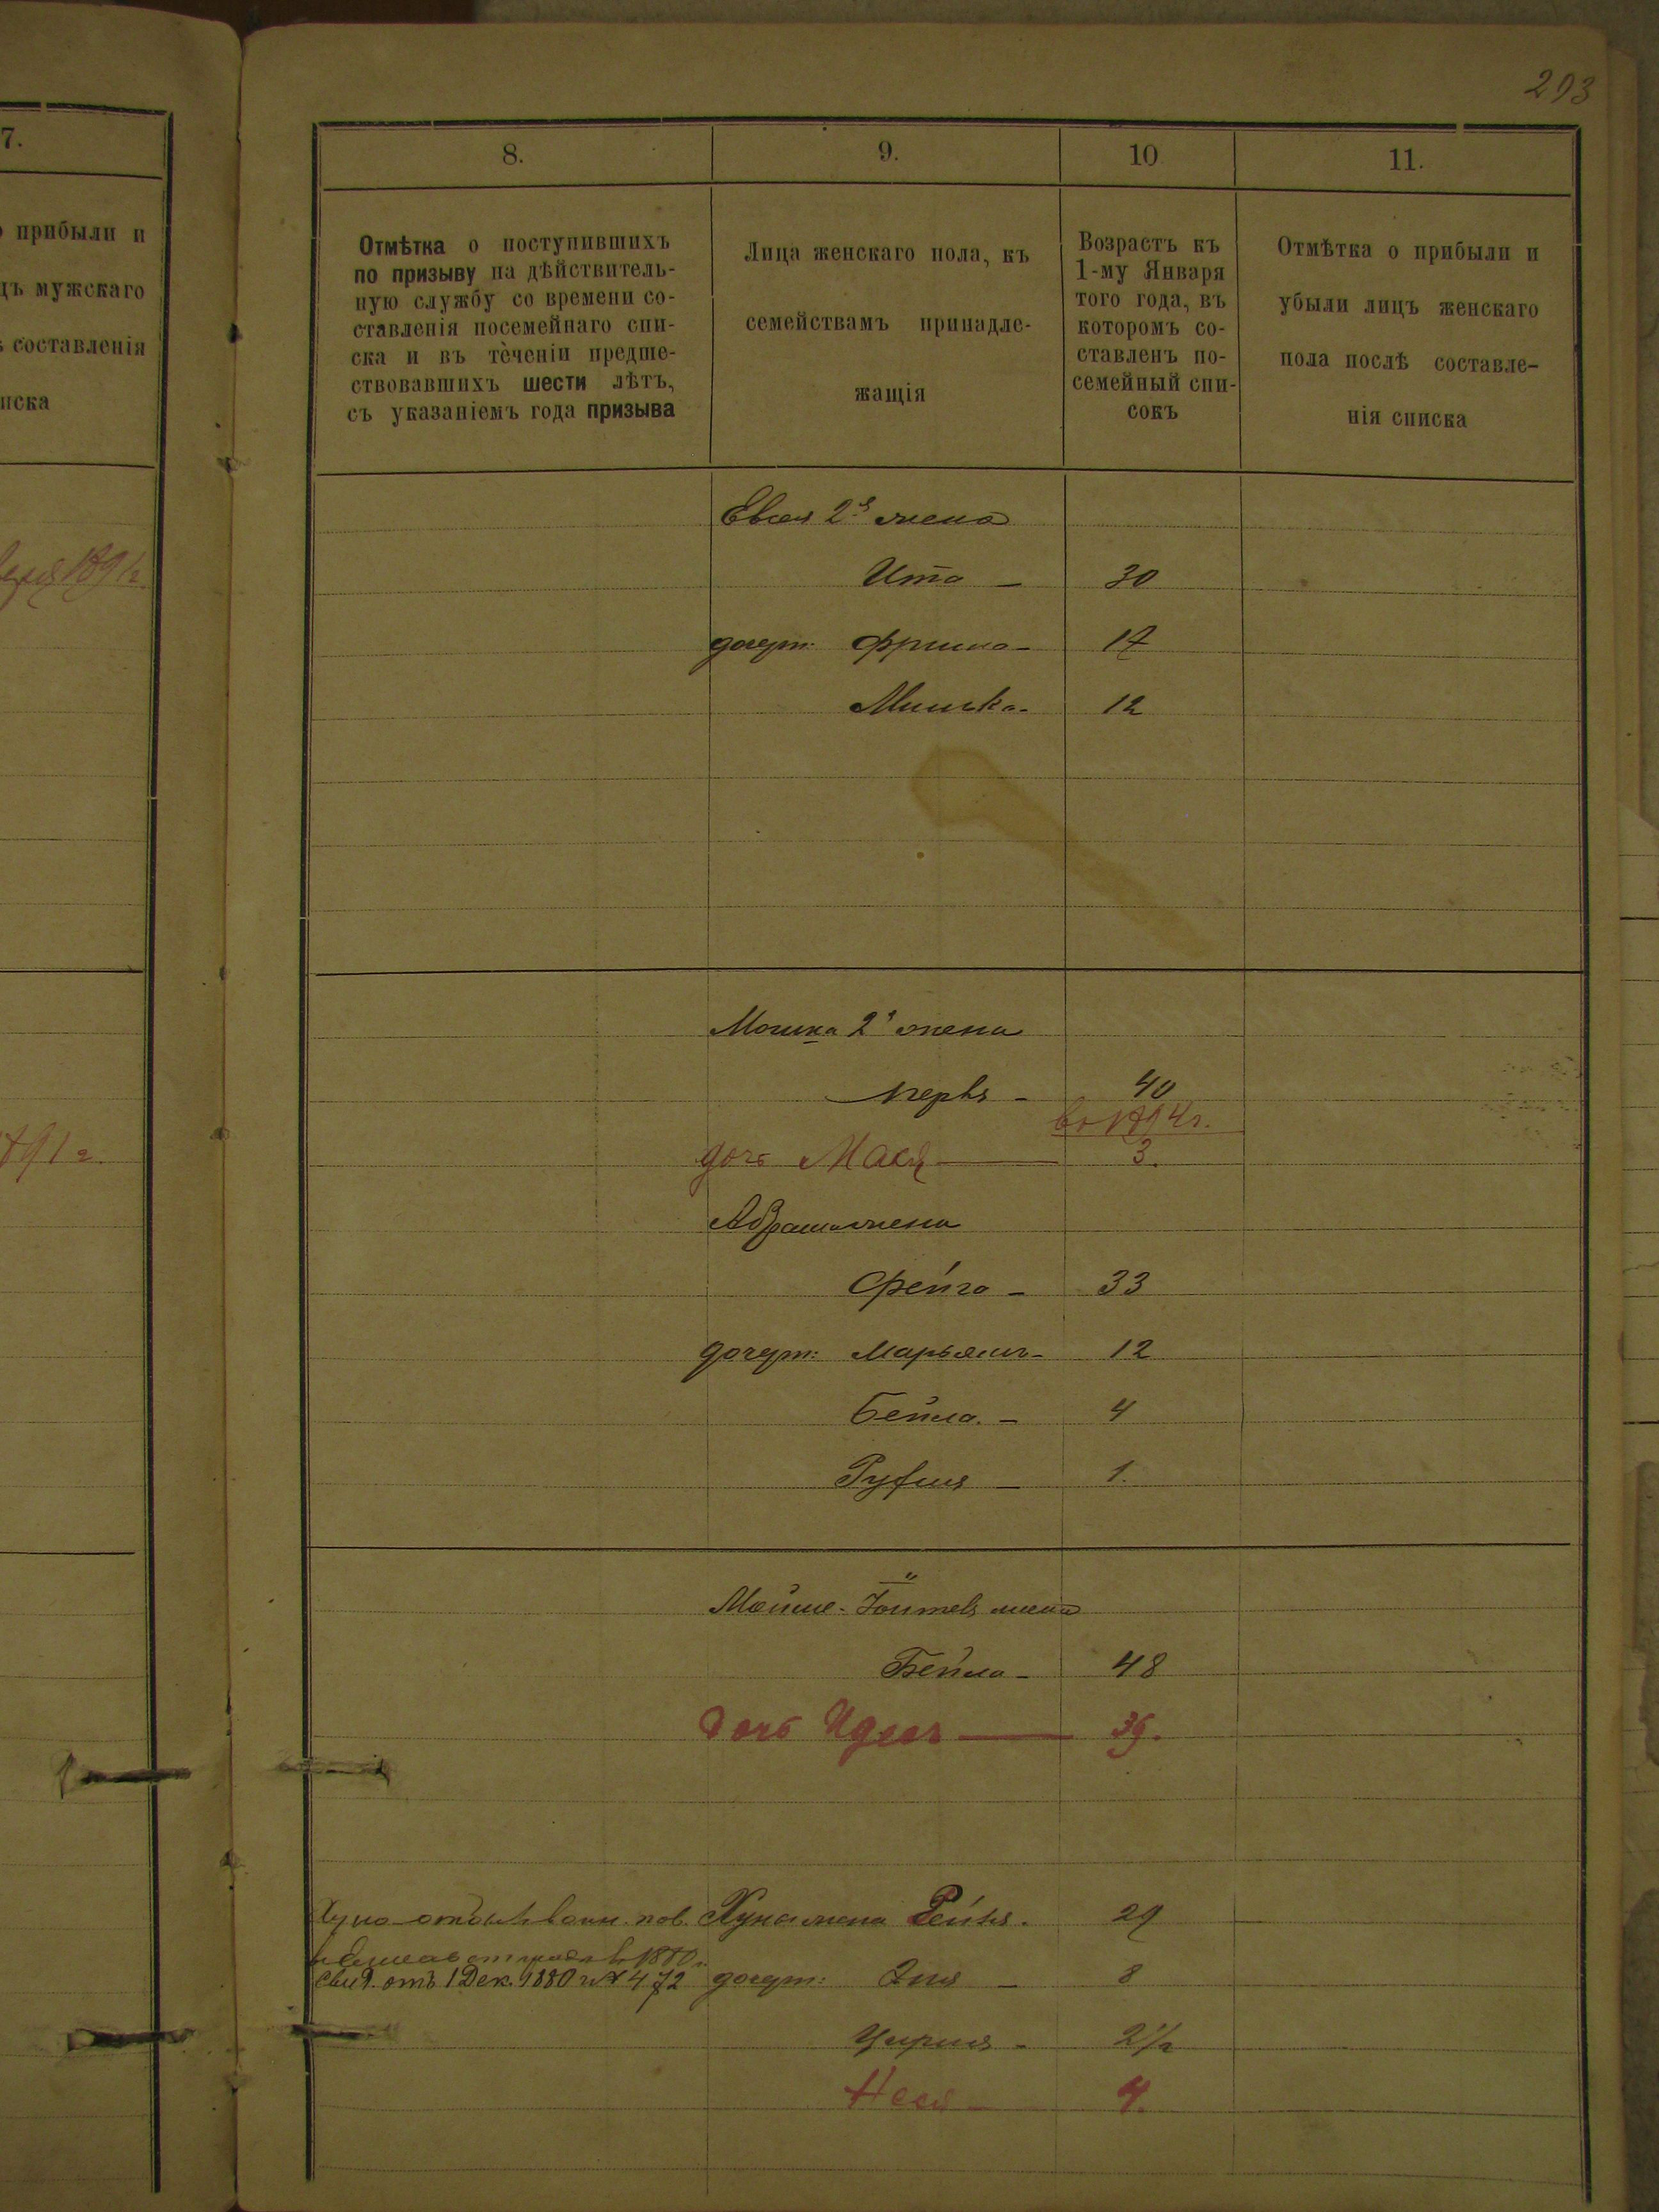 293
7.
прибыли и
цъ мужскаго
составленія
иска
1891г.
1891 г.
8.
9.
10
11.
Отмѣтка о поступившихъ
по призыву на дѣйствитель-
ную службу со времени со-
ставленія посемейнаго спи-
ска и въ теченіи предше-
ствовавшихъ шести лѣтъ,
съ указаніемъ года призыва
Лица женскаго пола, къ
семействамъ принадле-
жащія
Возрастъ къ
1-му Января
того года, въ
которомъ со-
ставленъ по-
семейный спи-
сокъ
Отмѣтка о прибыли и
убыли лицъ женскаго
пола послѣ составле-
нія списка
2я жена
Ита — 30
дочерт: Фрима — 17
Минька — 12
Мошка 2я жена
40
въ 1894г.
дочь Мася — 3.
Абрама жена
Фейга — 33
дочерт: Марьямъ — 12
Бейла. — 4
1.
Мойше-Іонтевъ жена
Бейла — 48
дочь Идесъ — 36.
Хуна жена Рейзя. 29
Свид. отъ 1 Дек. 1880 г. № 472 дочерт: Эня — 8
Цирля — 2 1/2
Неся — 4.